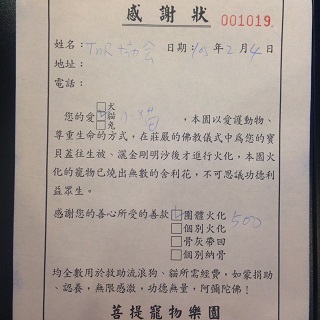 感謝狀
001019
姓名：TNR協會 日期：105年2月4日
地址：
電話：
您的愛□犬
☑貓
□兔
，本園以愛護動物、
尊重生命的方式，在莊嚴的佛教儀式中為您的寶
貝蓋往生被、灑金剛明沙後才進行火化，本園火
化的寵物已燒出無數的舍利花，不可思議功德利
益眾生。
感謝您的善心所受的善款☑團體火化 500
□個別火化
□骨灰帶回
□個別納骨
均全數用於救助流浪狗、貓所需經費，如蒙捐助
、認養，無限感激，功德無量，阿彌陀佛！
菩提寵物樂園